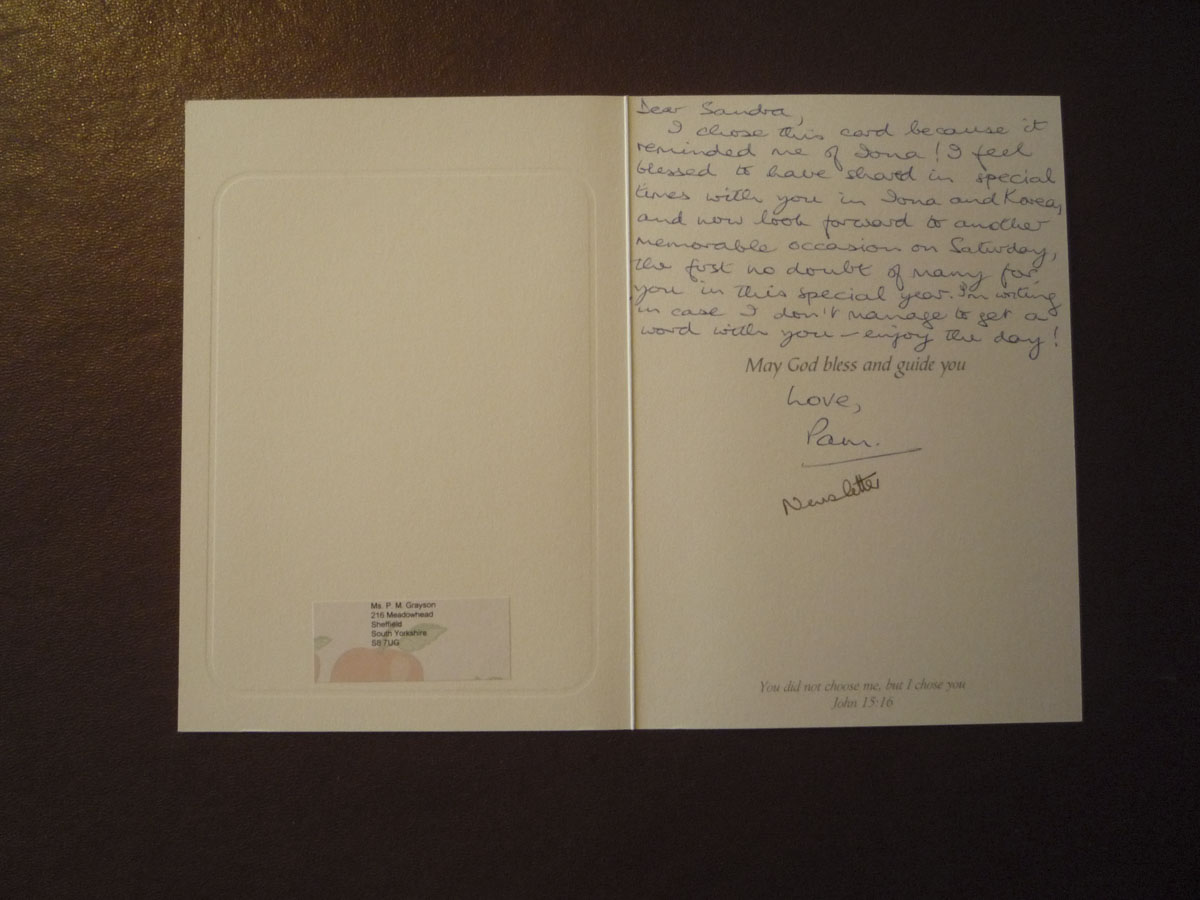 Ms. P. M. Grayson
216 Meadowhead
Sheffield
South Yorkshire
S8 7UG
Dear Sandra,
I chose this card because it
reminded me of Iona! I feel
blessed to have shared in special
times with you in Iona and Korea,
and now look forward to another
memorable occasion on Saturday,
the first no doubt of many for
you in this special year. I'm writing
in case I don't manage to get a
word with you – enjoy the day!
May God bless and guide you
Love,
Pam.
Newsletter
You did not choose me, but I chose you
John 15:16